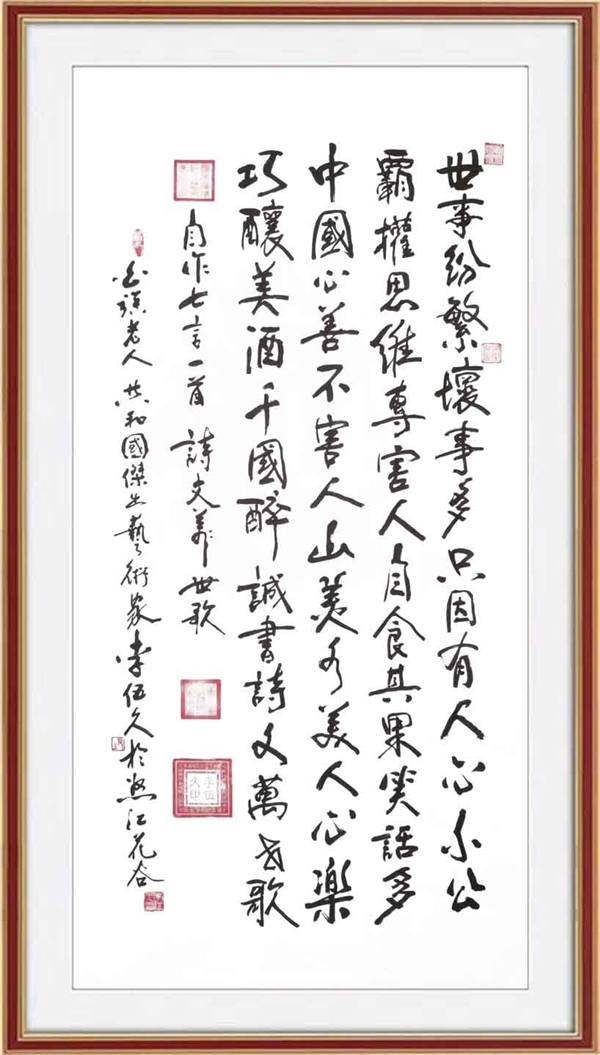 世事紛繁壞事多只因有人心不公
霸權思維專害人自食其果笑話多
中國心善不害人山美水美人心樂
巧釀美酒千國醉誠書詩文萬世歌
自作七言一首 詩文美世歌
老人 共和國傑出藝術家李伍久於江花谷
李伍久印